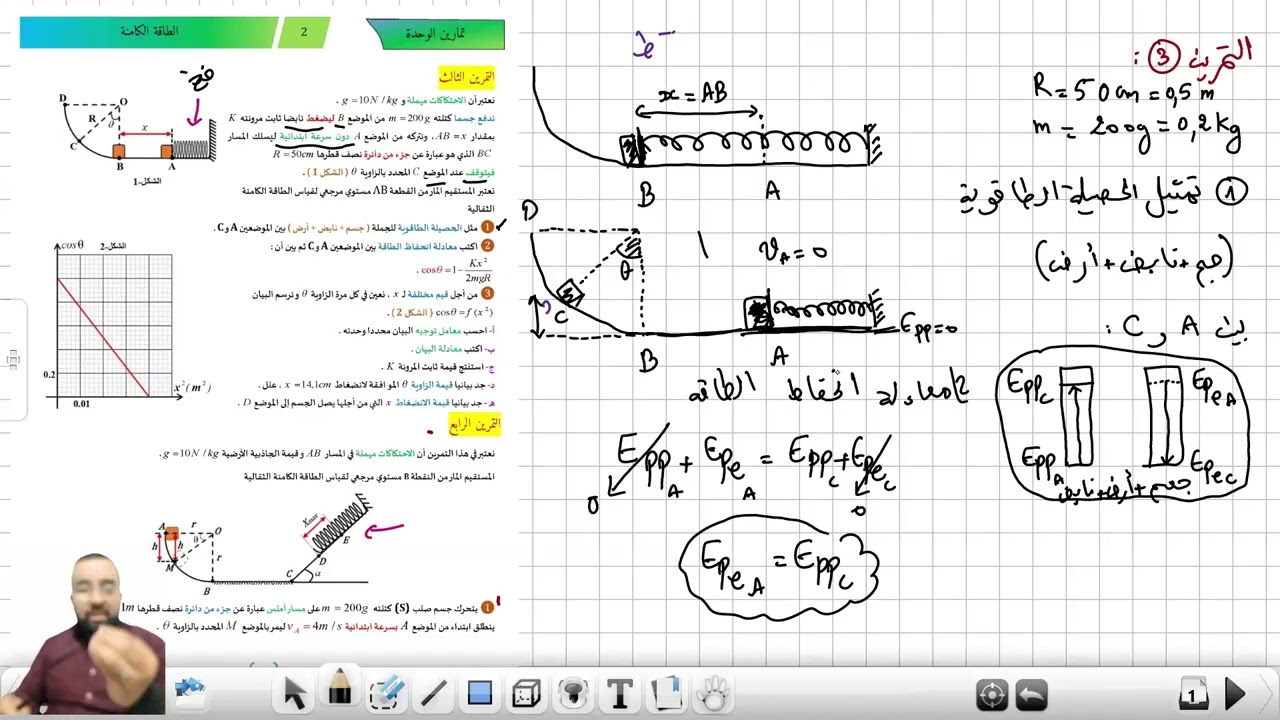 تمارين الوحدة
2
الطاقة الكامنة
التمرين الثالث
نعتبر أن الاحتكاكات مهملة و g =10N / kg .
ندفع جسما كتلته m = 200g من الموضع B ليضغط نابضا ثابت مرونته K
بمقدار AB = x، ونتركه من الموضع A دون سرعة ابتدائية ليسلك المسار
BC الذي هو عبارة عن جزء من دائرة نصف قطرها R = 50cm
فيتوقف عند الموضع C المحدد بالزاوية θ (الشكل 1).
نعتبر المستقيم المار من القطعة AB مستوي مرجعي لقياس الطاقة الكامنة
الثقالية
1 مثل الحصيلة الطاقوية للجملة (جسم + نابض + أرض) بين الموضعين A و C .
2 اكتب معادلة انحفاظ الطاقة بين الموضعين A و C ثم بين أن :
cosθ = 1 − Kx²/2mgR .
3 من أجل قيم مختلفة لـ x ، نعين في كل مرة الزاوية θ ونرسم البيان
cosθ = f (x²) (الشكل 2).
أ- احسب معامل توجيه البيان محددا وحدته .
ب- اكتب معادلة البيان .
ج- استنتج قيمة ثابت المرونة K .
د- جد بيانيا قيمة الزاوية θ الموافقة لانضغاط x = 14,1cm ، علل .
هـ- جد بيانيا قيمة الانضغاط x التي من أجلها يصل الجسم إلى الموضع D .
D
O
R
θ
x
C
B
A
الشكل-1
cosθ
الشكل-2
0.2
x² (m²)
0.01
التمرين الرابع
نعتبر في هذا التمرين أن الاحتكاكات مهملة في المسار AB وقيمة الجاذبية الأرضية g =10N / kg .
المستقيم المار من النقطة B مستوي مرجعي لقياس الطاقة الكامنة الثقالية
A
r
O
h
h
θ
r
M
B
C
D
E
α
Xmax
1 يتحرك جسم صلب (S) كتلته m = 200g على مسار أملس عبارة عن جزء من دائرة نصف قطرها 1m
ينطلق ابتداء من الموضع A بسرعة ابتدائية v_A = 4m / s ليمر بالموضع M المحدد بالزاوية θ .
x = AB
B
A
D
θ
C
v_A = 0
Epp=0
B
A
التمرين 3 :
R = 50 cm = 0,5 m
m = 200g = 0,2 Kg
1 تمثيل الحصيلة الطاقوية
(جسم + نابض + أرض)
بين A و C :
Epp_C
Epp_A
Epe_A
Epe_C
جسم + أرض + نابض
معادلة انحفاظ الطاقة
Epp_A + Epe_A = Epp_C + Epe_C
0
0
Epe_A = Epp_C
1